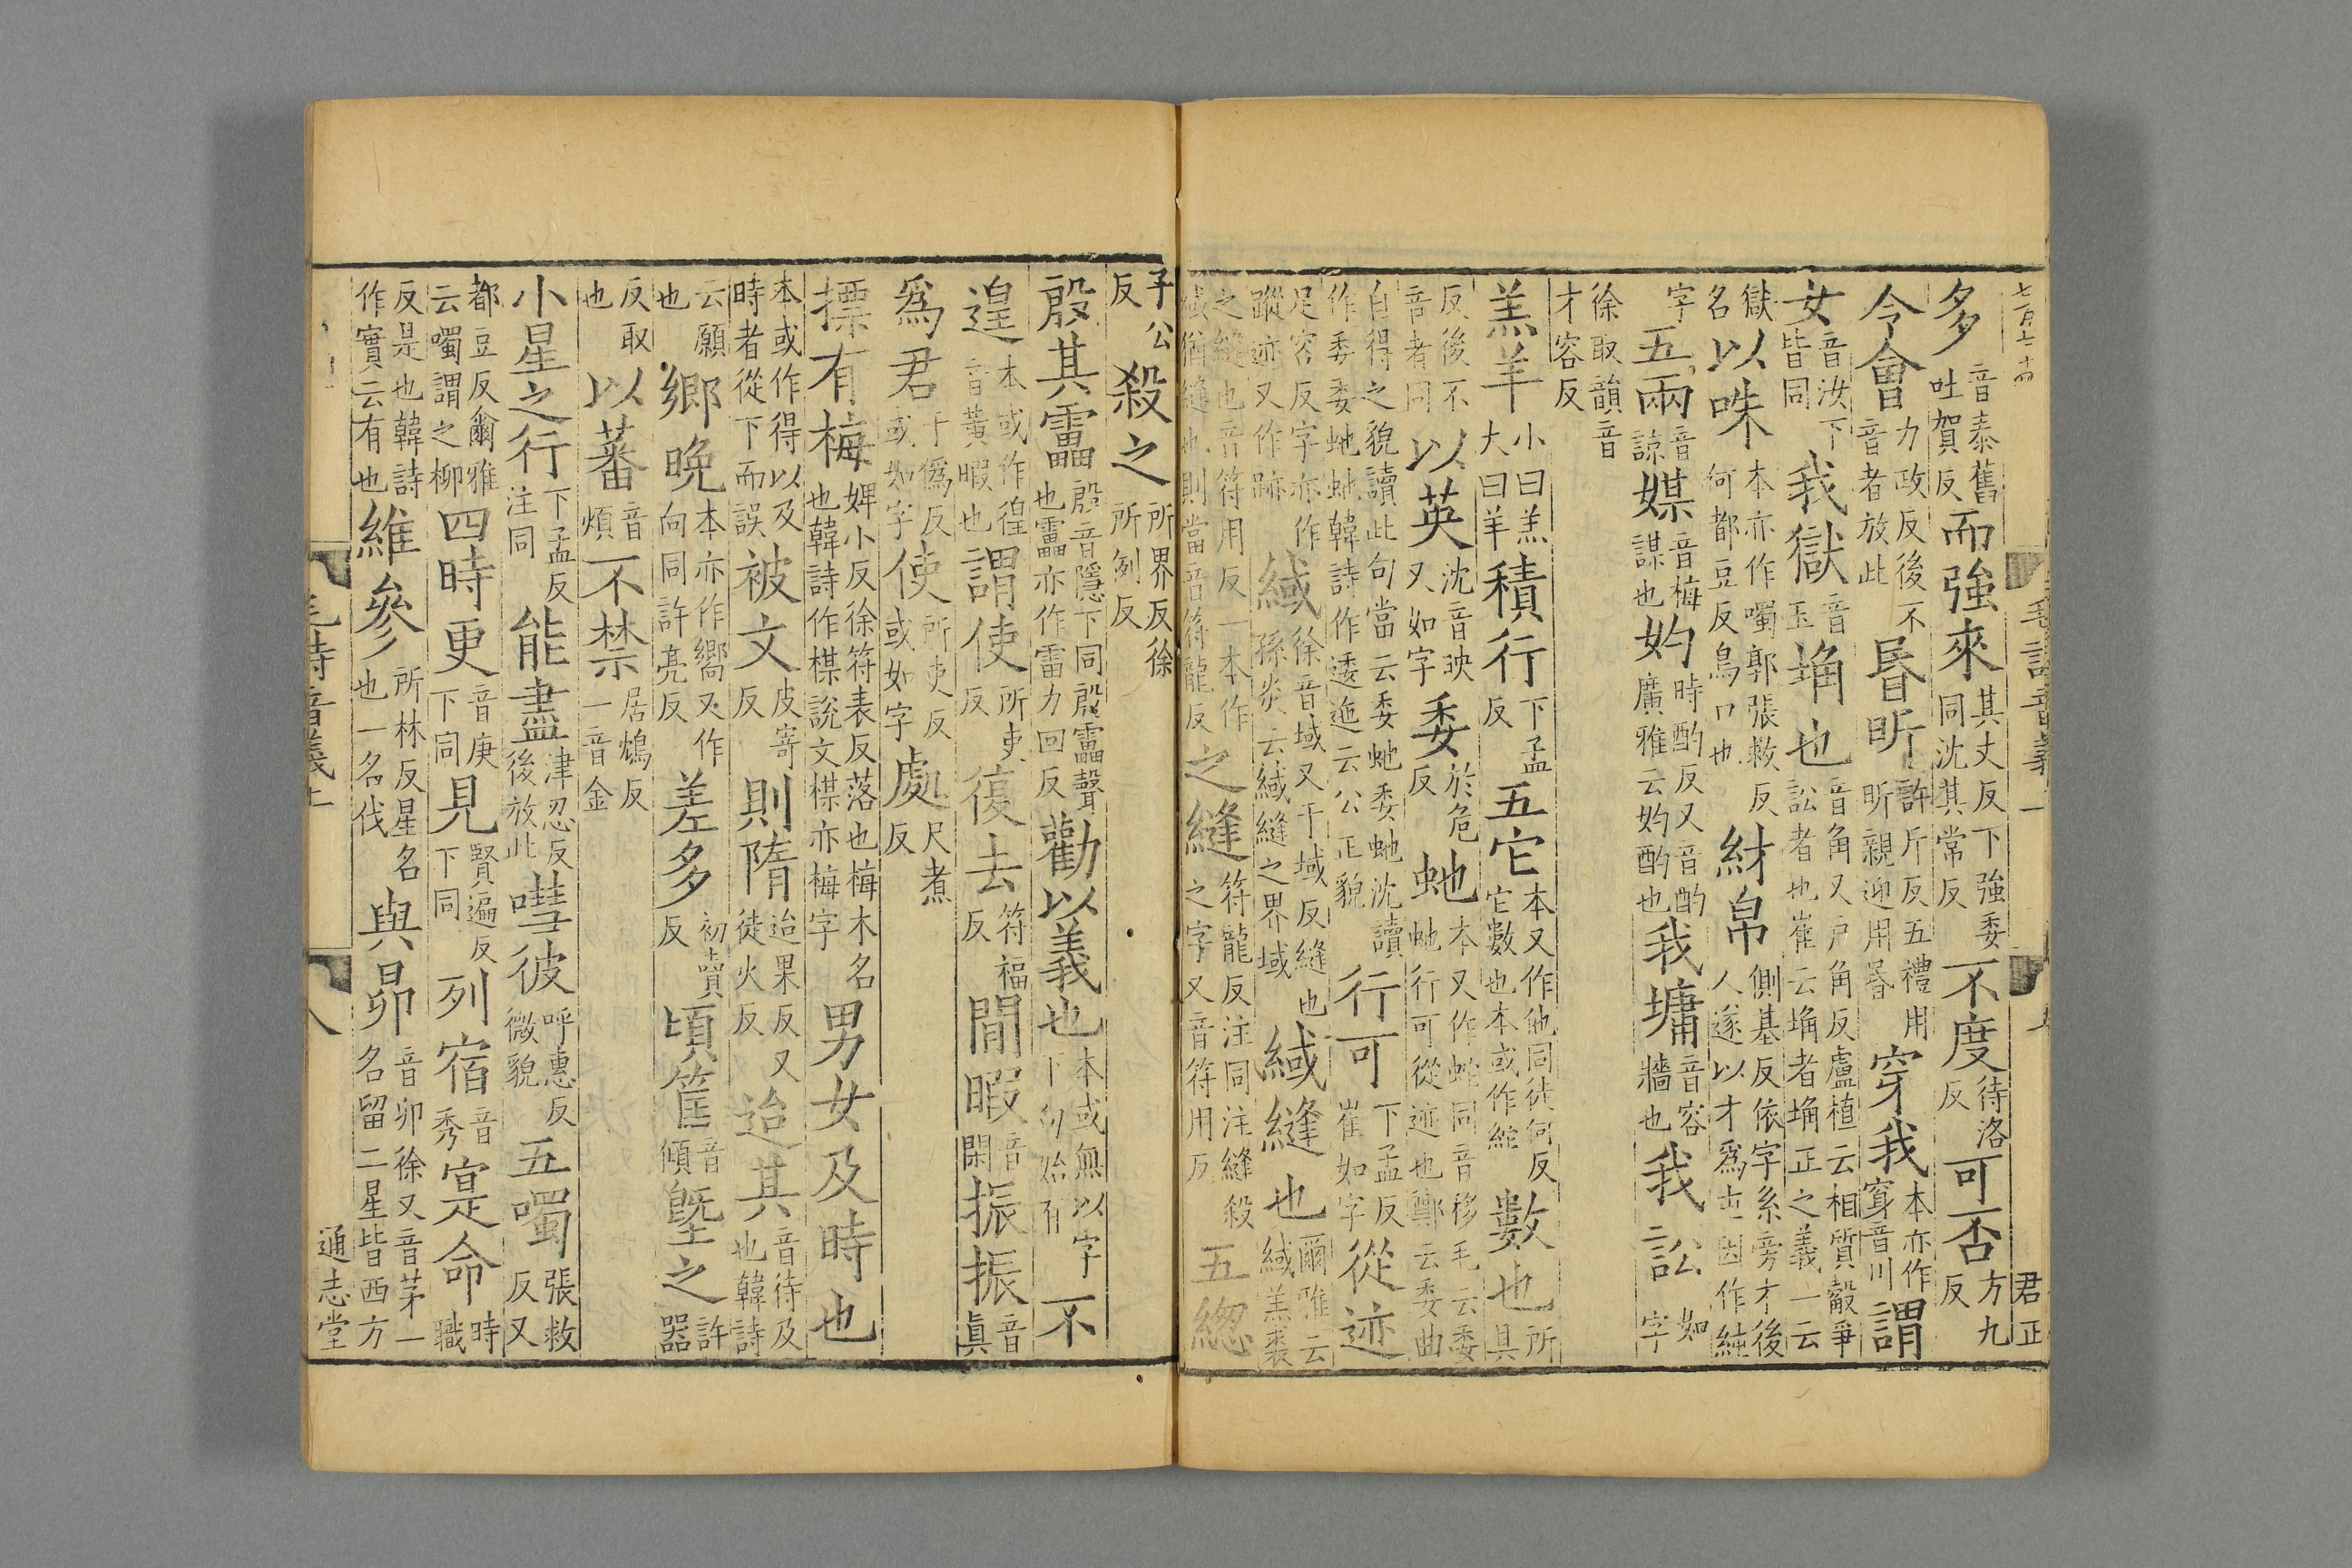 七百七十四 毛詩音義一 九 君正
多音泰舊吐賀反而強來其丈反下強委同沈其常反不度待洛反可否方九反
令會力政反後不音者放此昏昕許斤反五禮用昕親迎用昏穿我本亦作穿音川謂
女音汝下皆同我獄音玉埆也音角又戶角反盧植云相質觳爭訟者也崔云埆者埆正之義一云
獄名以咮本亦作噣郭張救反何都豆反鳥口也紂帛側基反依字糸旁才後人遂以才爲屯因作純
字五兩音諒媒音梅謀也妁時酌反又音酌廣雅云妁酌也我墉音容牆也我訟如字
徐取韻音才容反
羔羊小曰羔大曰羊積行下孟反五它本又作他同徒何反它數也本或作紽數也所具
反後不音者同以英沈音映又如字委於危反虵本又作蛇同音移毛云委虵行可從迹也鄭云委曲
自得之貌讀此句當云委虵委虵沈讀作委委虵虵韓詩作逶迤云公正貌行可下孟反崔如字從迹
足容反字亦作蹤迹又作跡緎徐音域又于域反縫也孫炎云緎縫之界域緎縫也爾雅云緎羔裘
之縫也音符用反一本作緎猶縫也則當音符龍反之縫符龍反注同注縫殺之字又音符用反五緫
子公反殺之所界反徐所例反
殷其靁殷音隱下同殷靁聲也靁亦作雷力回反勸以義也本或無以字下句始有不
遑本或作徨音黃暇也謂使所吏反復去符福反閒暇音閑振振音眞
爲君于僞反或如字使所吏反或如字處尺煮反
摽有梅婢小反徐符表反落也梅木名也韓詩作楳說文楳亦梅字男女及時也
本或作得以及時者從下而誤被文皮寄反則隋迨果反又徒火反迨其音待及也韓詩
云願也鄉晚本亦作嚮又作向同許亮反差多初賣反頃筐音傾墍之許器
反取也以蕃音煩不禁居鴆反一音金
小星之行下孟反注同能盡津忍反後放此嘒彼呼惠反微貌五噣張救反又
都豆反爾雅云噣謂之柳四時更音庚下同見賢遍反下同列宿音秀寔命時職
反是也韓詩作實云有也維參所林反星名也一名伐與昴音卯徐又音茅一名留二星皆西方
毛詩音義上 八 通志堂